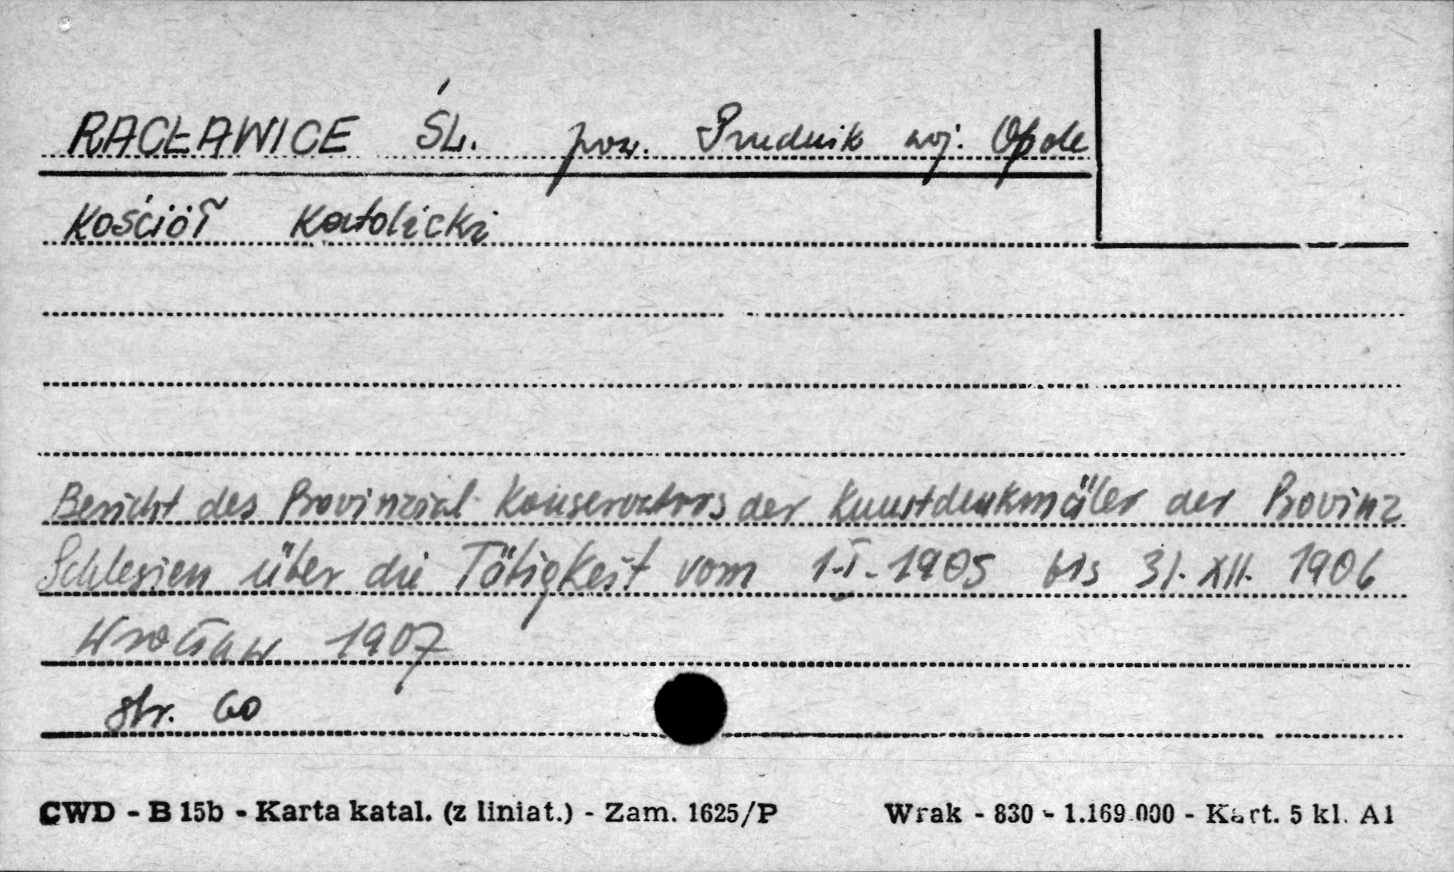 RACŁAWICE ŚL. pow. Prudnik woj. Opole
Kościół Katolicki
Bericht des Provinzial-Konservators der Kunstdenkmäler der Provinz
Schlesien über die Tätigkeit vom 1.I.1905 bis 31.XII.1906
Wrocław 1907
str. 60
CWD - B 15b - Karta katal. (z liniat.) - Zam. 1625/P Wrak - 830 - 1.169.000 - Kart. 5 kl. A1